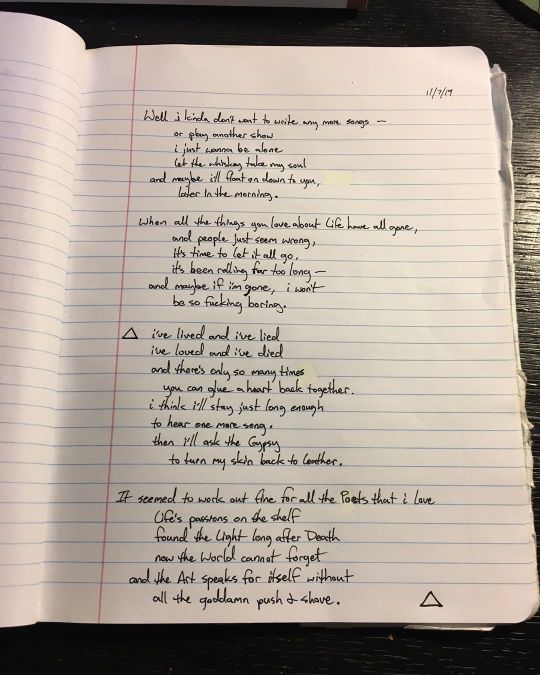 11/7/19
Well i kinda don't want to write any more songs —
or play another show
i just wanna be alone
let the whiskey take my soul
and maybe i'll float on down to you,
later in the morning.
When all the things you love about Life have all gone,
and people just seem wrong,
it's time to let it all go,
it's been rolling far too long —
and maybe if i'm gone, i won't
be so fucking boring.
△ i've lived and i've lied
i've loved and i've died
and there's only so many times
you can glue a heart back together.
i think i'll stay just long enough
to hear one more song.
then i'll ask the Gypsy
to turn my skin back to Leather.
It seemed to work out fine for all the Poets that i Love
Life's passions on the shelf
found the Light long after Death
now the World cannot forget
and the Art speaks for itself without
all the goddamn push & shove. △